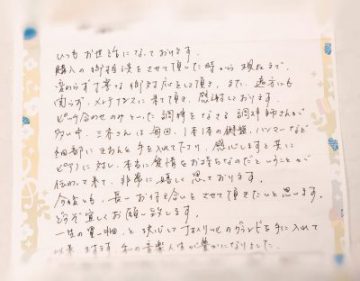 いつもお世話になっております。
購入の御相談をさせて頂いた時から現在まで、
変わらず丁寧な御対応をして頂き、また、遠方にも
関らず、メンテナンスに来て頂き、感謝しております。
ピッチ合わせのみといった調律をなさる調律師さんが
多い中、三木さんは毎回、1本1本の鍵盤、ハンマーなど
細部にきちんと手を入れて下さり、感心しますと共に
ピアノに対し、本当に愛情をお持ちなのだということが
伝わって来て、非常に嬉しく思っております。
今後とも、長いお付き合いをさせて頂きたいと思います。
どうぞ宜しくお願い致します。
一生の買い物、と決心して のグランドを手に入れて
以来、ますます、私の音楽人生が豊かになりました。